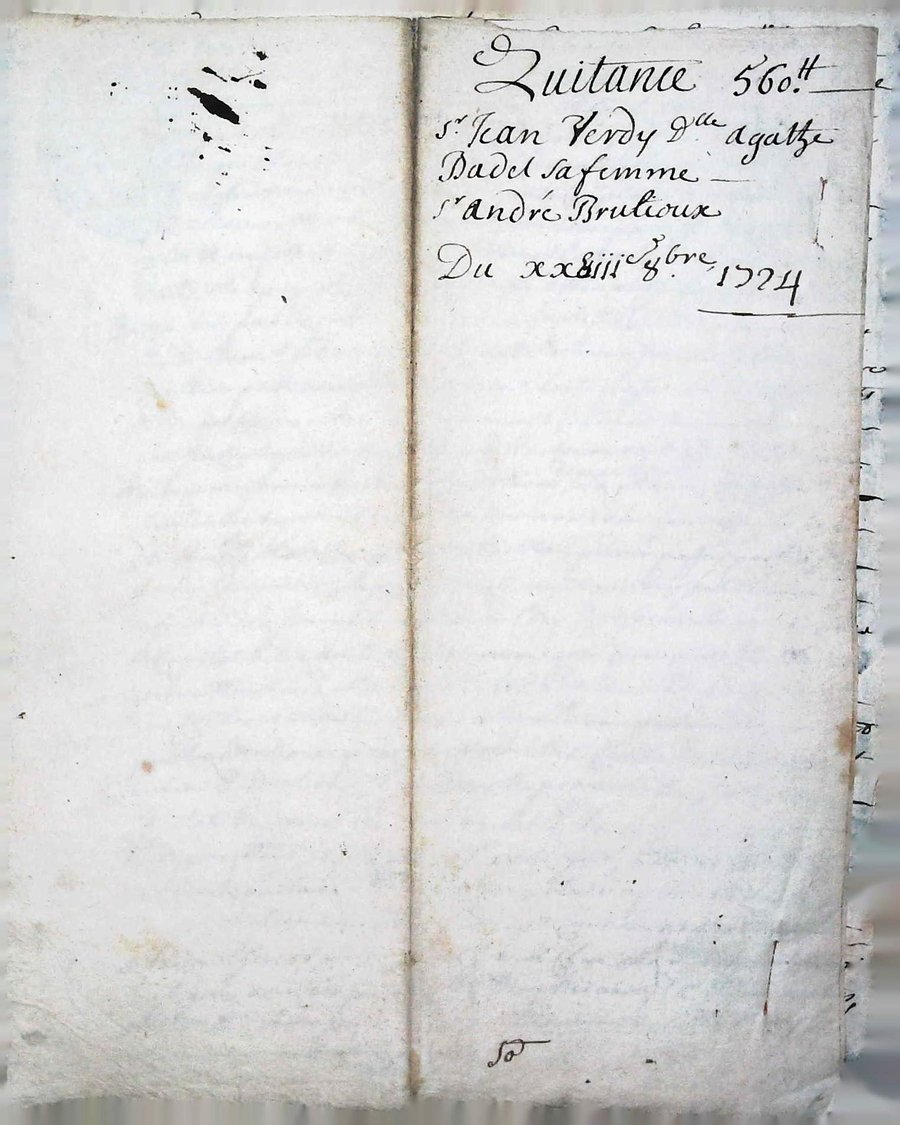 Quitance 560.tt
Sr Jean Verdy Dlle agathe
Badel sa femme
Sr andré Brulioux
Du xxviiie 8.bre 1724